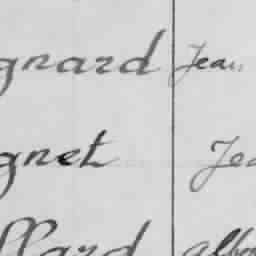 gnard Jean
gnet Je
llard Albe